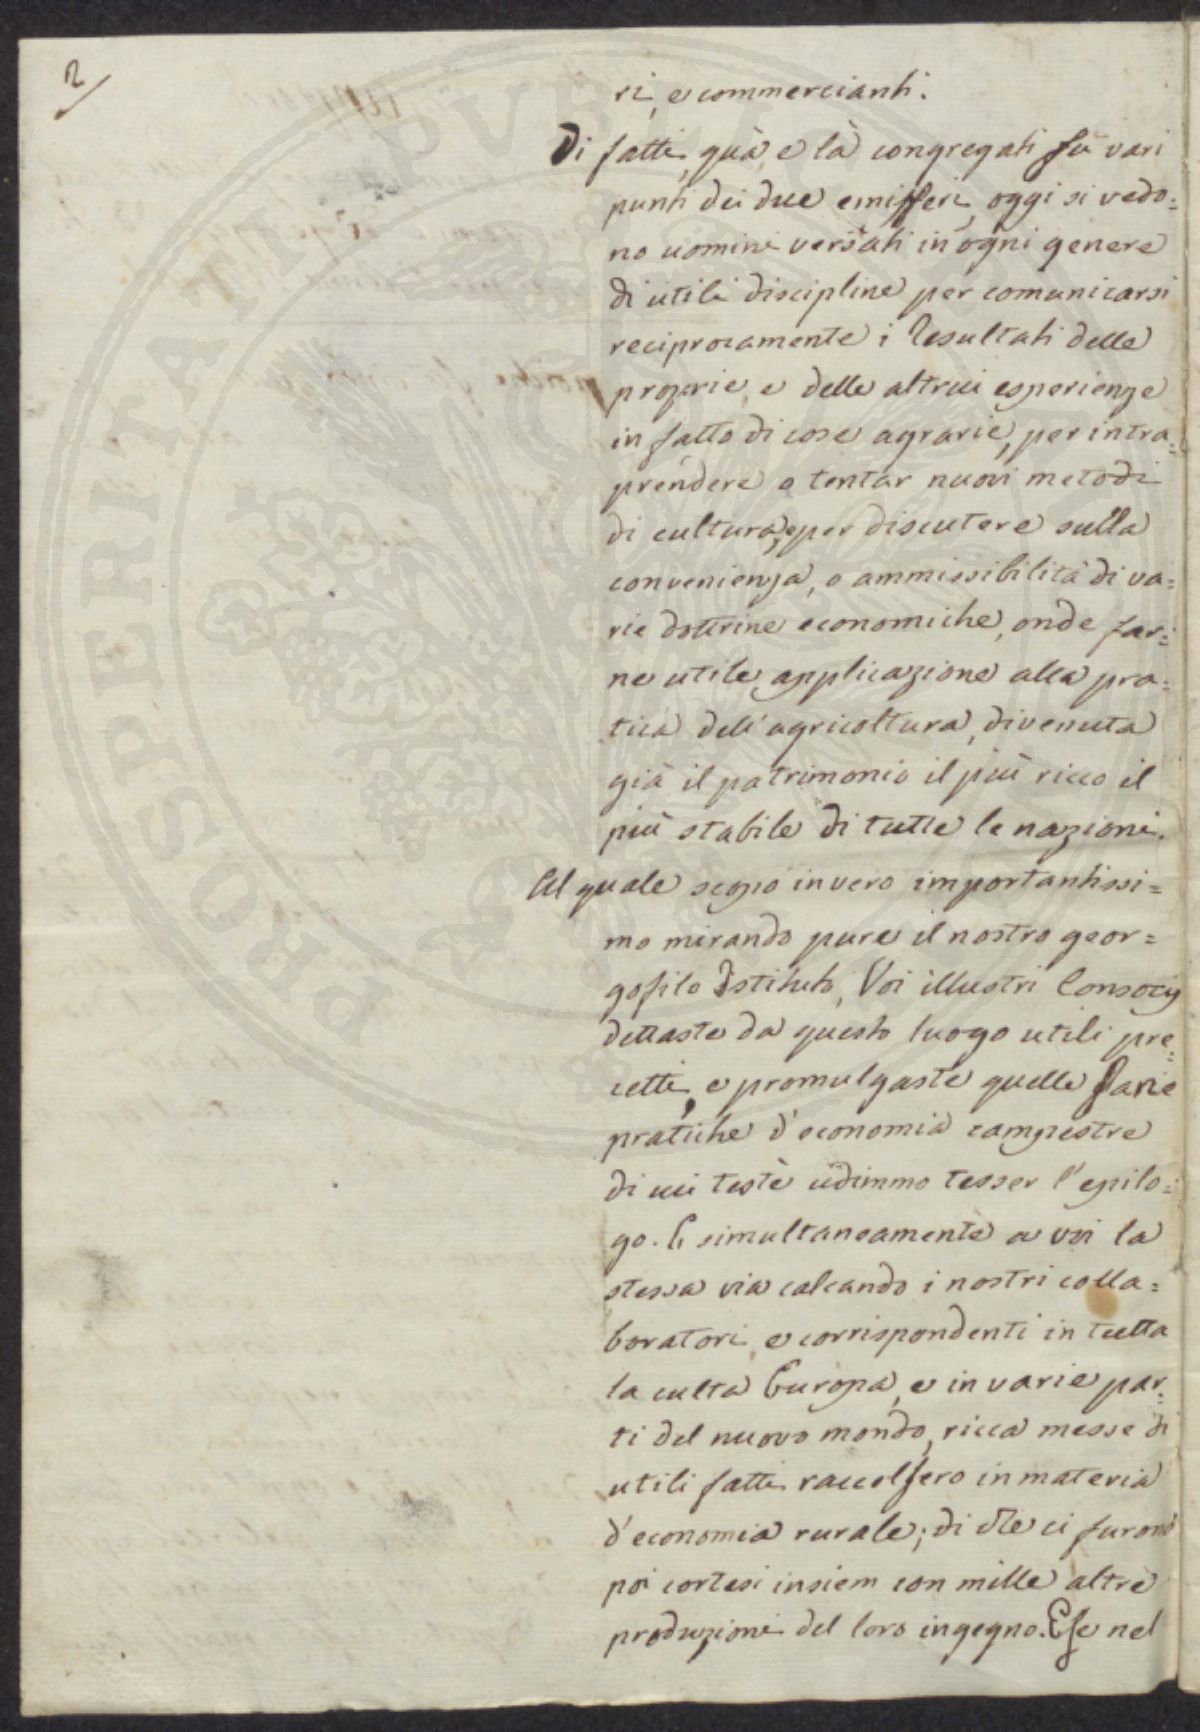 2
ri, e commercianti.
Di fatti, quà e là congregati sù vari
punti dei due emisferi, oggi si vedo=
no uomini versati in ogni genere
di utili discipline per comunicarsi
reciprocamente i resultati delle
proprie, e delle altrui esperienze
in fatto di cose agrarie, per intra=
prendere e tentar nuovi metodi
di cultura, e per discutere sulla
convenienza, o ammissibilità di va=
rie dottrine economiche, onde far=
ne utile applicazione alla pra=
tica dell'agricoltura, divenuta
già il patrimonio il più ricco il
più stabile di tutte le nazioni.
Al quale scopo in vero importantissi=
mo mirando pure il nostro geor=
gofilo Istituto, Voi illustri Consocij
dettaste da questo luogo utili pre=
cetti, e promulgaste quelle savie
pratiche d'economia campestre
di cui testè udimmo tesser l'epilo=
go. E simultaneamente a voi la
stessa via calcando i nostri colla=
boratori, e corrispondenti in tutta
la culta Europa, e in varie par=
ti del nuovo mondo, ricca messe di
utili fatti raccolsero in materia
d'economia rurale; di che ci furono
poi cortesi insiem con mille altre
produzioni del loro ingegno. E se nel
PROSPERITATI PVBLICAE